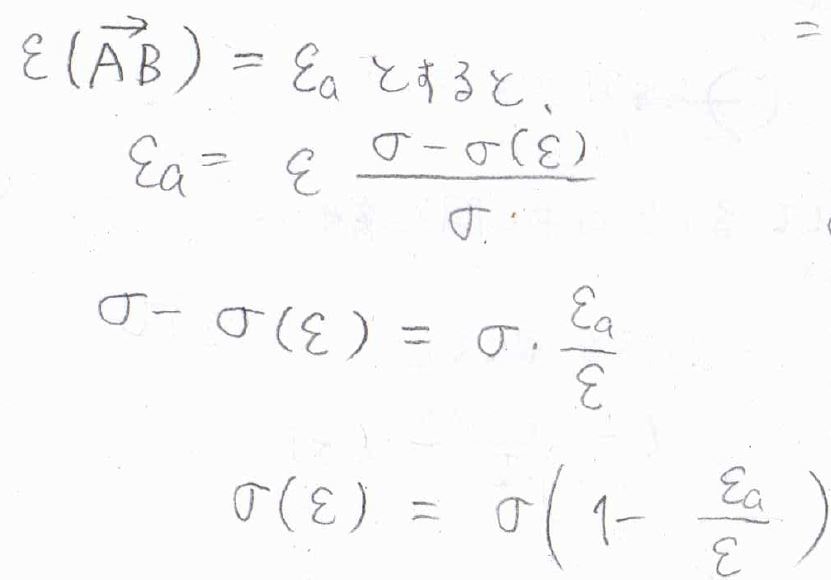 ε(\overrightarrow{AB}) = ε_a とすると、
ε_a = ε \frac{σ - σ(ε)}{σ}
σ - σ(ε) = σ · \frac{ε_a}{ε}
σ(ε) = σ(1 - \frac{ε_a}{ε})